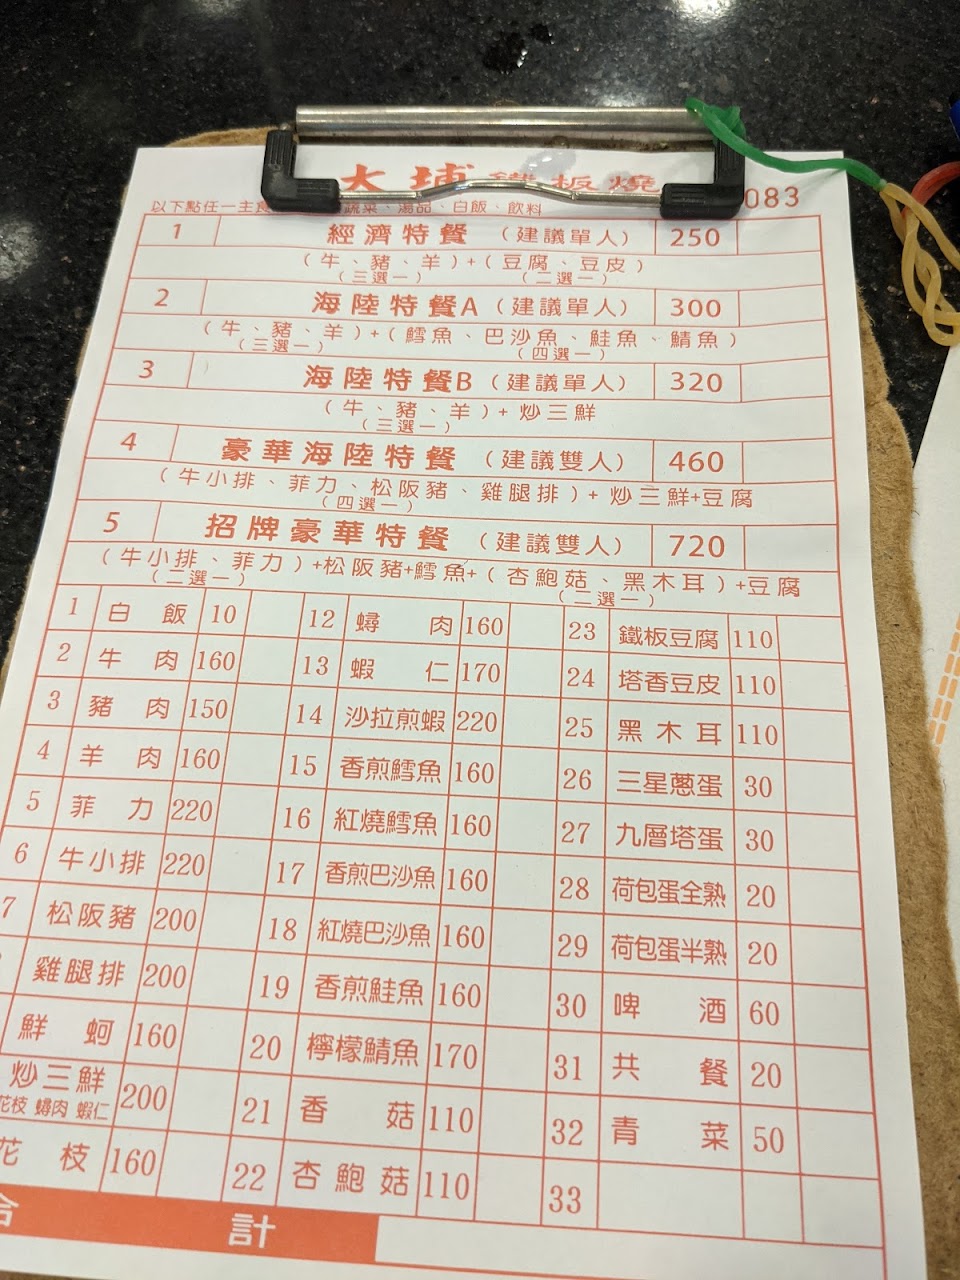 大埔鐵板燒
083
以下點任一主食 蔬菜、湯品、白飯、飲料
1 經濟特餐 (建議單人) 250
(牛、豬、羊)+(豆腐、豆皮)
(三選一) (二選一)
2 海陸特餐A (建議單人) 300
(牛、豬、羊)+(鱈魚、巴沙魚、鮭魚、鯖魚)
(三選一) (四選一)
3 海陸特餐B (建議單人) 320
(牛、豬、羊)+炒三鮮
(三選一)
4 豪華海陸特餐 (建議雙人) 460
(牛小排、菲力、松阪豬、雞腿排)+炒三鮮+豆腐
(四選一)
5 招牌豪華特餐 (建議雙人) 720
(牛小排、菲力)+松阪豬+鱈魚+(杏鮑菇、黑木耳)+豆腐
(二選一) (二選一)
1 白飯 10 12 蟳肉 160 23 鐵板豆腐 110
2 牛肉 160 13 蝦仁 170 24 塔香豆皮 110
3 豬肉 150 14 沙拉煎蝦 220 25 黑木耳 110
4 羊肉 160 15 香煎鱈魚 160 26 三星蔥蛋 30
5 菲力 220 16 紅燒鱈魚 160 27 九層塔蛋 30
6 牛小排 220 17 香煎巴沙魚 160 28 荷包蛋全熟 20
7 松阪豬 200 18 紅燒巴沙魚 160 29 荷包蛋半熟 20
雞腿排 200 19 香煎鮭魚 160 30 啤酒 60
鮮蚵 160 20 檸檬鯖魚 170 31 共餐 20
炒三鮮 200 21 香菇 110 32 青菜 50
花枝 蟳肉 蝦仁
花枝 160 22 杏鮑菇 110 33
合計